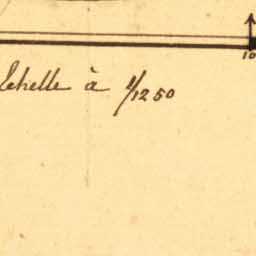 10
Echelle à 1/1250